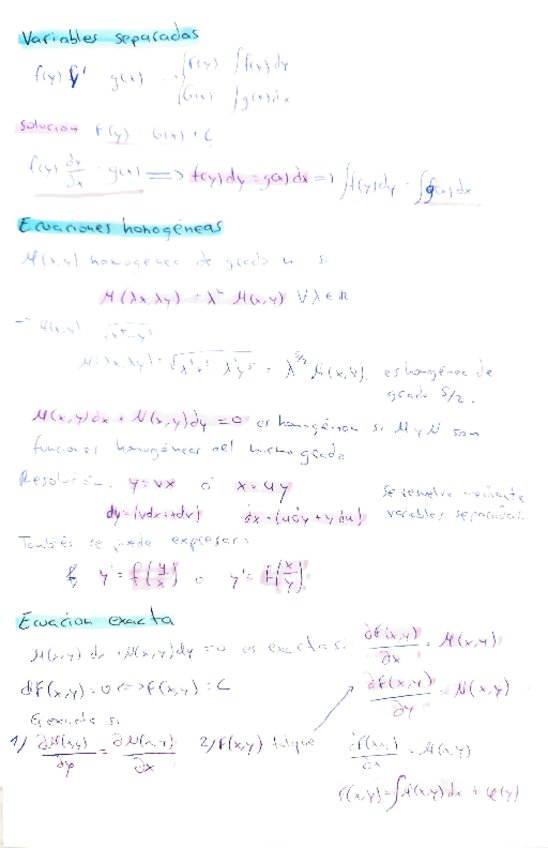 Variables separadas
f(y) y' g(x) → F(y) ∫f(y)dy
G(x) ∫g(x)dx
Solución F(y) G(x) + C
f(y) dx/dx = g(x) ⟹ f(y)dy = g(x)dx ⟹ ∫f(y)dy = ∫g(x)dx
Ecuaciones homogéneas
M(x,y) homogénea de grado n si
M(λx,λy) = λⁿ M(x,y) ∀λ∈ℝ
M(λx,λy) = = λ^5/2 M(x,y), es homogénea de
grado 5/2.
M(x,y)dx + N(x,y)dy = 0 es homogénea si M y N son
funciones homogéneas del mismo grado
Resolución. y=vx ó x=uy Se resuelve mediante
dy=(vdx+xdv) dx=(udy+ydu) variables separadas.
También se puede expresar:
y' = f(y/x) o y' = f(x/y)
Ecuacion exacta
M(x,y)dx + N(x,y)dy = 0 es exacta si: ∂F(x,y)/∂x = M(x,y)
dF(x,y)=0 <-> F(x,y)=C ∂F(x,y)/∂y = N(x,y)
Es exacta si
1) ∂M(x,y)/∂y = ∂N(x,y)/∂x 2) F(x,y) tal que ∂F(x,y)/∂x = M(x,y)
F(x,y)=∫M(x,y)dx + φ(y)